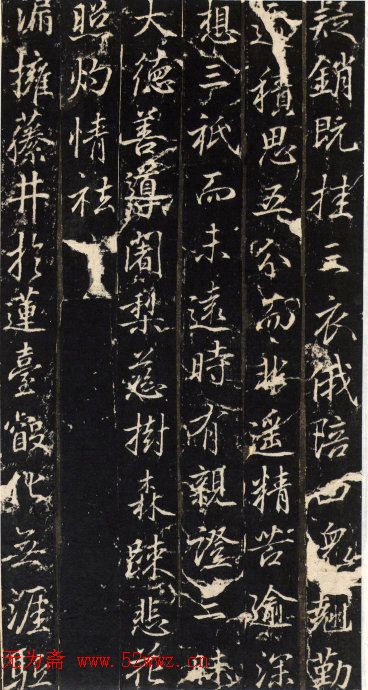 疑銷既挂三衣俄陪四眾翹勤
積思五分而非遥精苦逾深
想三祇而未遠時有親證三昧
大德善導闍梨慈樹森疎悲花
照灼情祛
漏擁藤井於蓮臺叡化无涯驅
无为斋 www.52wwz.cn